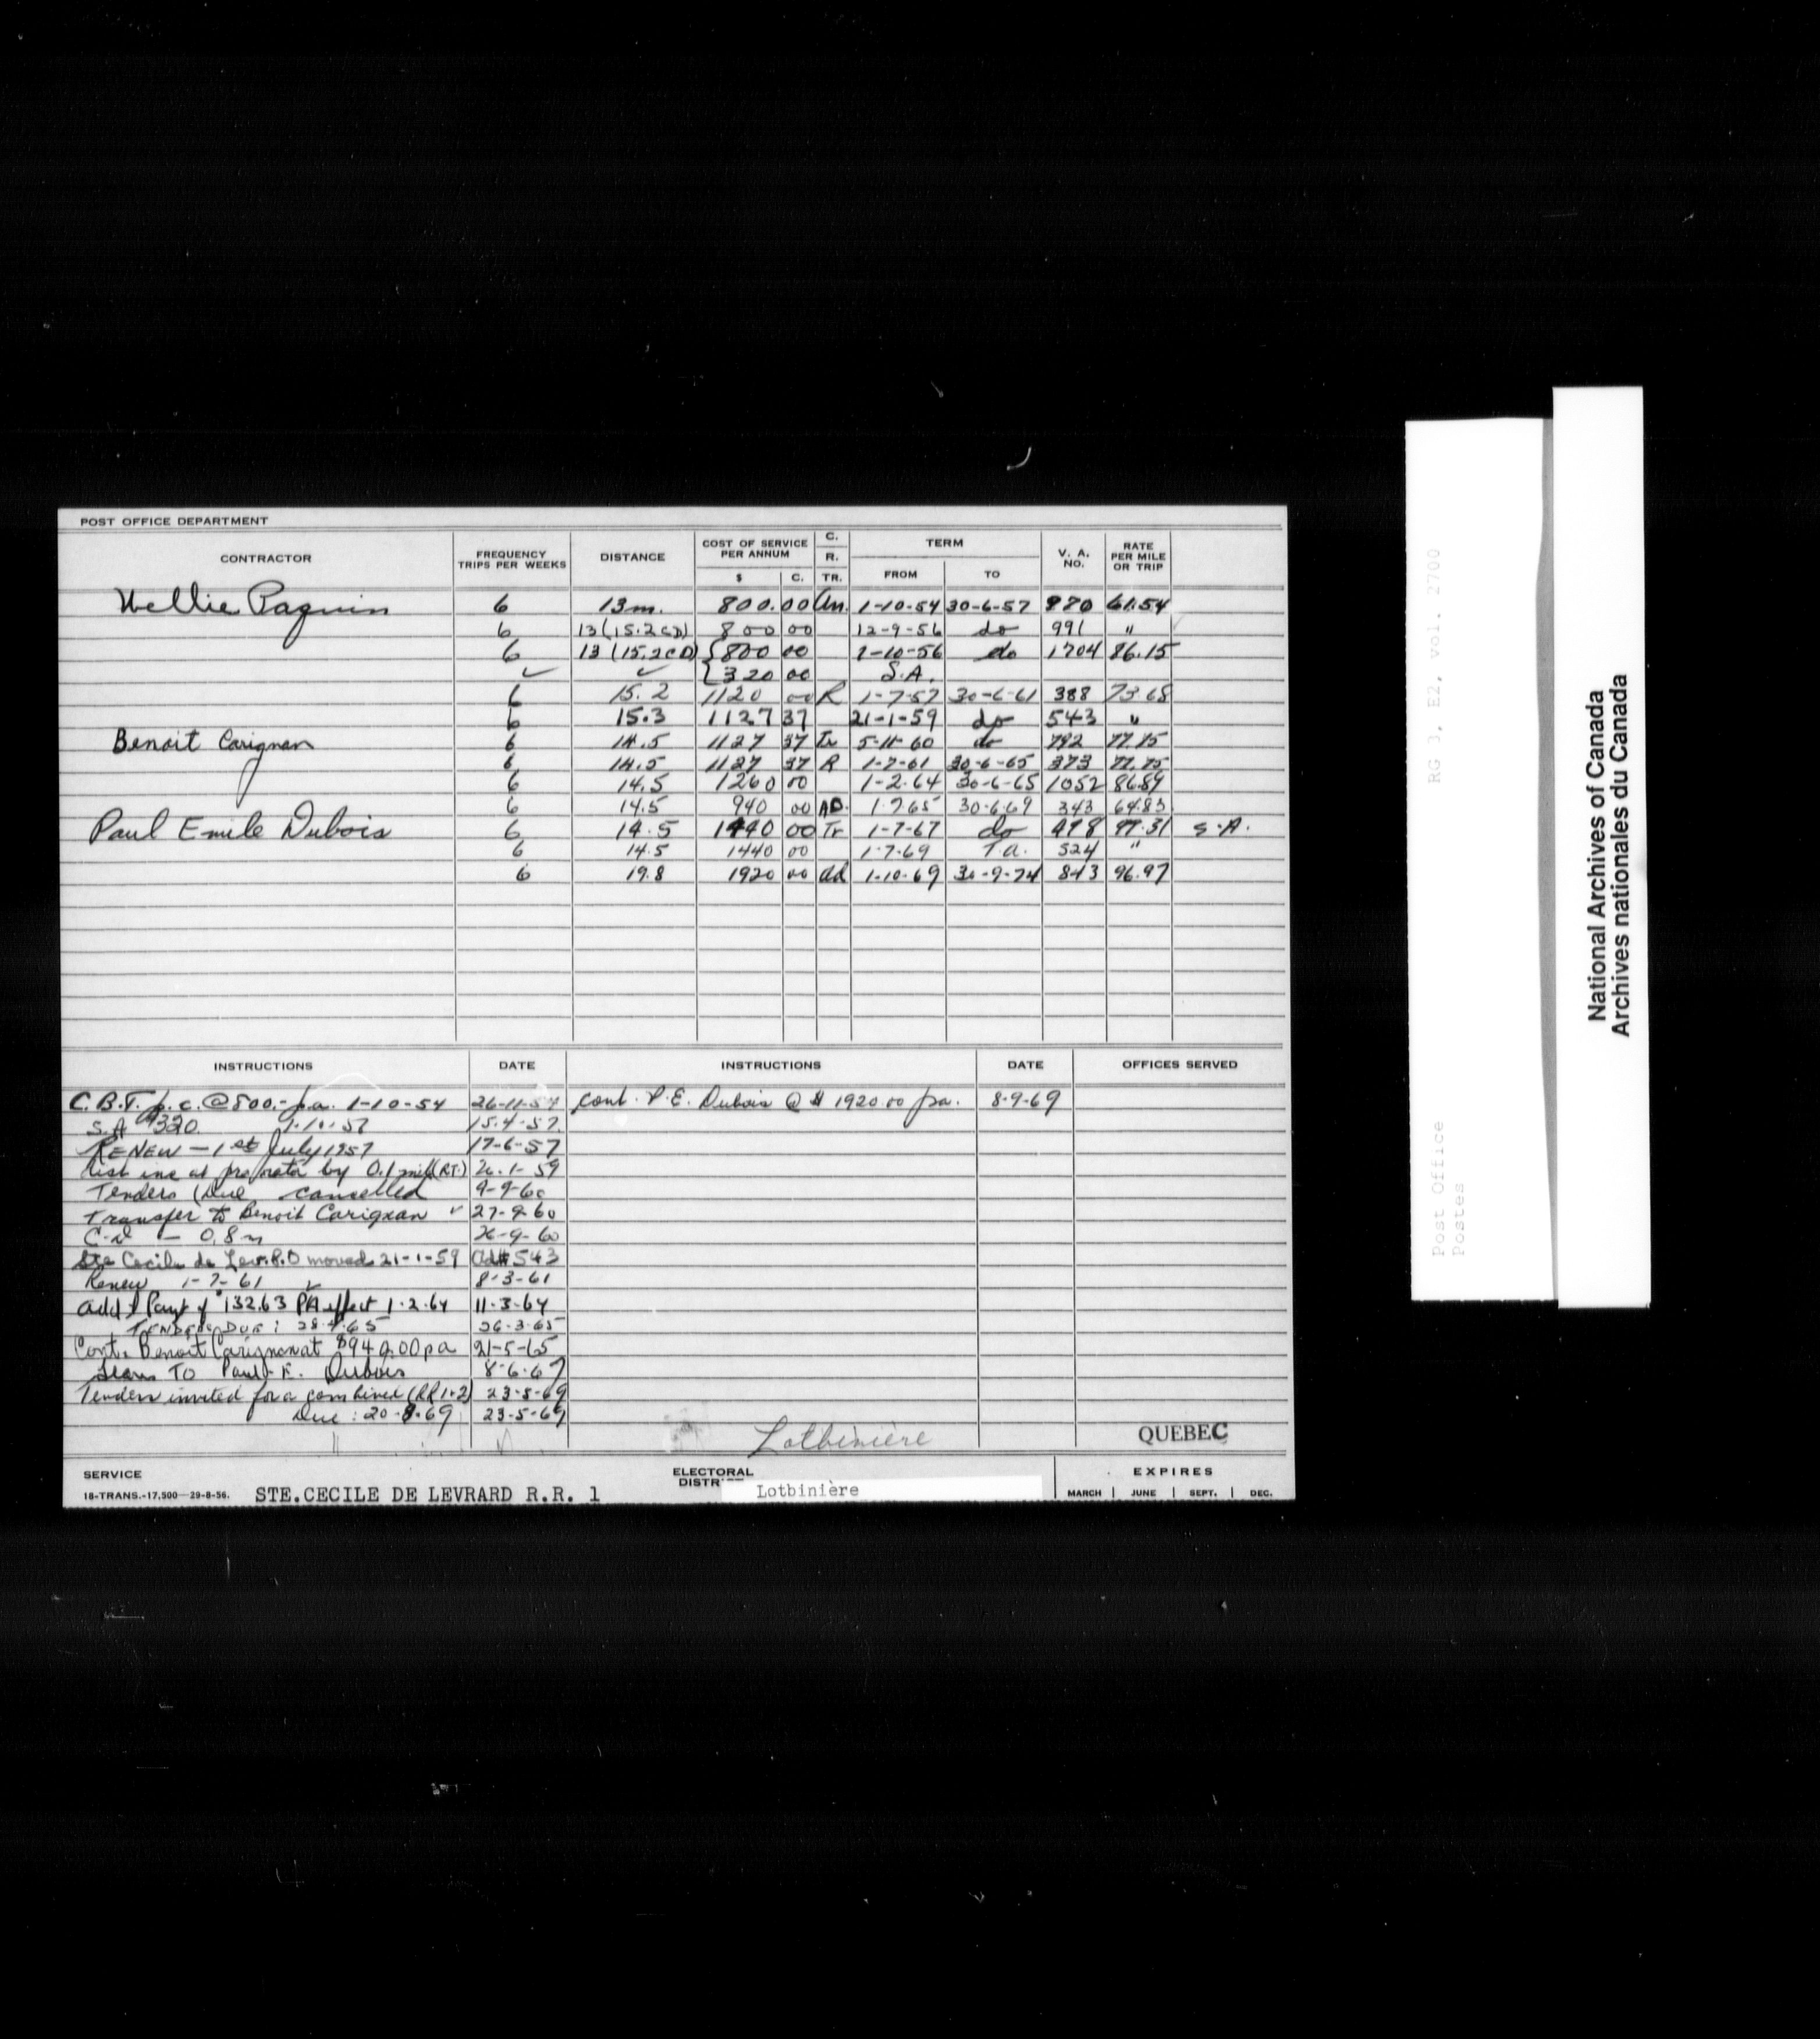 POST OFFICE DEPARTMENT
CONTRACTOR FREQUENCY TRIPS PER WEEKS DISTANCE COST OF SERVICE PER ANNUM $ C. C. R. TR. TERM FROM TO V. A. NO. RATE PER MILE OR TRIP
Wellie Paquin 6 13 m. 800.00 1-10-54 30-6-57 61.54
6 13 (15.2 CD) 800 00 12-9-56 do 991 "
6 13 (15.2 CD) {800 00 1-10-56 do 1704 86.15
✓ ✓ {320 00 S.A.
6 15.2 1120 00 R 1-7-57 30-6-61 388 73.68
6 15.3 1127 37 21-1-59 do 543 "
Benoit Carignan 6 14.5 1127 37 Tr 5-11-60 do 792 77.75
6 14.5 1127 37 R 1-7-61 30-6-65 373 77.75
6 14.5 1260 00 1-2-64 30-6-65 1052 86.89
6 14.5 940 00 AD. 1-7-65 30-6-69 343 64.83
Paul Emile Dubois 6 14.5 1440 00 Tr 1-7-67 do 478 99.31 S.A.
6 14.5 1440 00 1-7-69 T.a. 524 "
6 19.8 1920 00 Ad 1-10-69 30-9-74 843 96.97
INSTRUCTIONS DATE INSTRUCTIONS DATE OFFICES SERVED
C.B.T. p.c. @ 800.- p.a. 1-10-54 26-11-54 Cont. P.E. Dubois @ $ 1920.00 pa. 8-9-69
S.A $320. 15-4-57
RENEW — 1st July 1957 17-6-57
dist inc at pro rata by 0.1 mile (RT.) 26-1-59
Tenders (Due cancelled 9-9-60
Transfer to Benoit Carignan ✓ 27-9-60
C-D — 0.8 m 26-9-60
Ste Cecile de Lev. P.O moved 21-1-59 Ad# 543
Renew 1-7-61 ✓ 8-3-61
Add'l Paym't of $132.63 PA effect 1-2-64 11-3-64
TENDERS DUE: 28-4-65 26-3-65
Cont. Benoit Carignan at $940.00 pa 21-5-65
Trans TO Paul E. Dubois 8-6-67
Tenders invited for a combined (RR 1+2) 23-5-69
Due: 20-8-69 23-5-69
Lotbinière QUEBEC
SERVICE ELECTORAL DISTR EXPIRES
18-TRANS.-17,500—29-8-56. STE.CECILE DE LEVRARD R.R. 1 Lotbinière MARCH | JUNE | SEPT. | DEC.
RG 3, E2, vol. 2700
Post Office
Postes
National Archives of Canada
Archives nationales du Canada